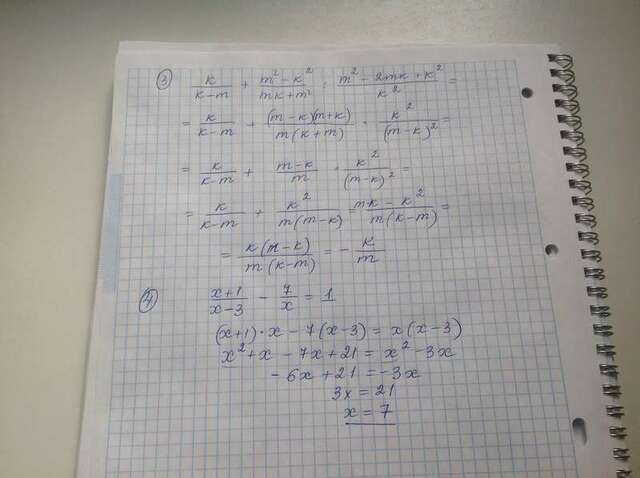 ③ k/(k-m) + (m²-k²)/(mk+m²) : (m²-2mk+k²)/k² =
= k/(k-m) + (m-k)(m+k)/(m(k+m)) · k²/(m-k)² =
= k/(k-m) + (m-k)/m · k²/(m-k)² =
= k/(k-m) + k²/(m(m-k)) = (mk-k²)/(m(k-m)) =
= k(m-k)/(m(k-m)) = - k/m
④ (x+1)/(x-3) - 7/x = 1
(x+1)·x - 7(x-3) = x(x-3)
x²+x - 7x+21 = x²-3x
-6x+21 = -3x
3x = 21
x = 7